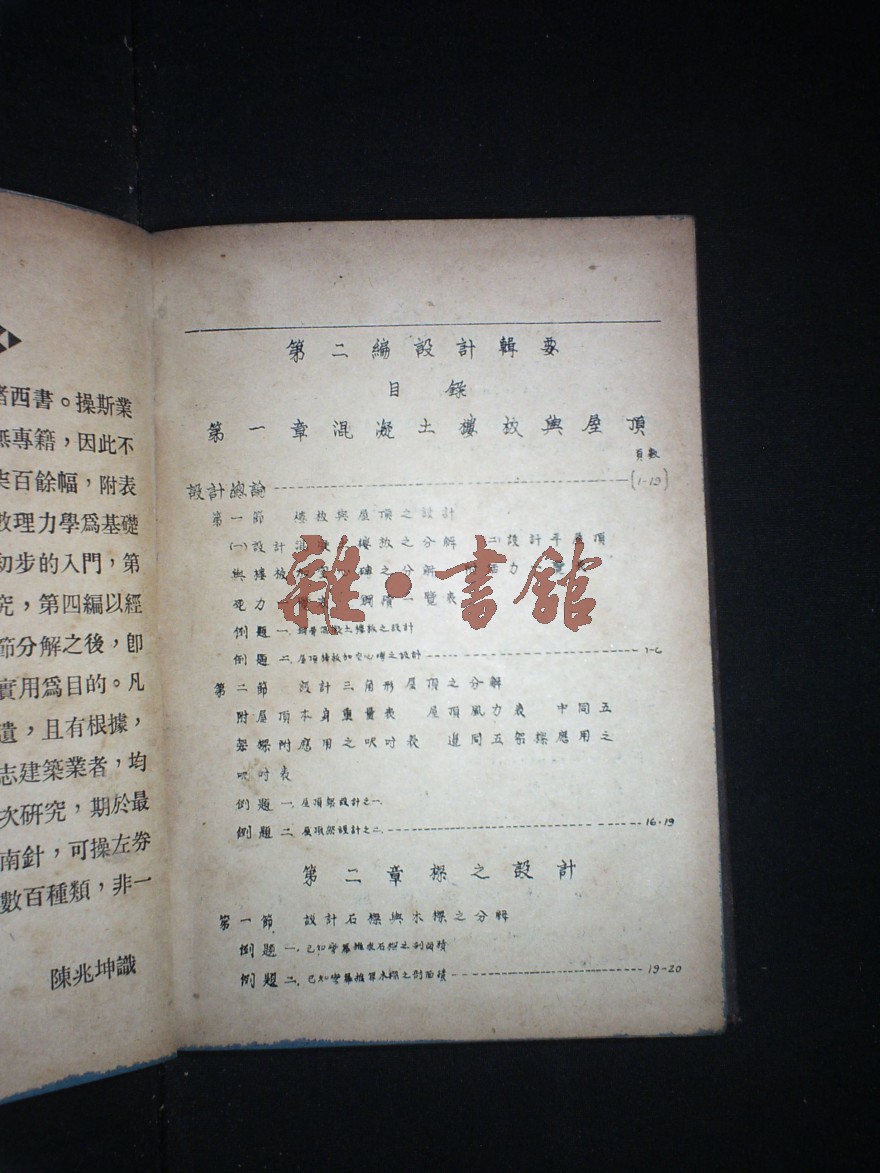 諸西書。操斯業
無專籍，因此不
柒百餘幅，附表
數理力學爲基礎
初步的入門，第
究，第四編以經
節分解之後，卽
實用爲目的。凡
遺，且有根據，
志建築業者，均
次研究，期於最
南針，可操左券
數百種類，非一
陳兆坤識
第二編設計輯要
目錄
第一章混凝土樓板與屋頂
頁數
設計總論 (1-19)
第一節 樓板與屋頂之設計
(一)設計 樓板之分解 (二)設計平屋頂
與樓板 空心磚之分解
電力 一覽表
例題一. 鋼骨混凝土樓板之設計
例題二. 屋頂樓板加空心磚之設計 1-6
第二節 設計三角形屋頂之分解
附屋頂本身重量表 屋頂風力表 中間五
架樑附應用之呎吋表 邊間五架樑應用之
呎吋表
例題一. 屋頂架設計之一.
例題二. 屋頂架設計之二. 16-19
第二章樑之設計
第一節 設計石樑與木樑之分解
例題一. 已知彎冪推求石樑之剖面積
例題二. 已知彎冪推算木樑之剖面積 19-20
雜·書館